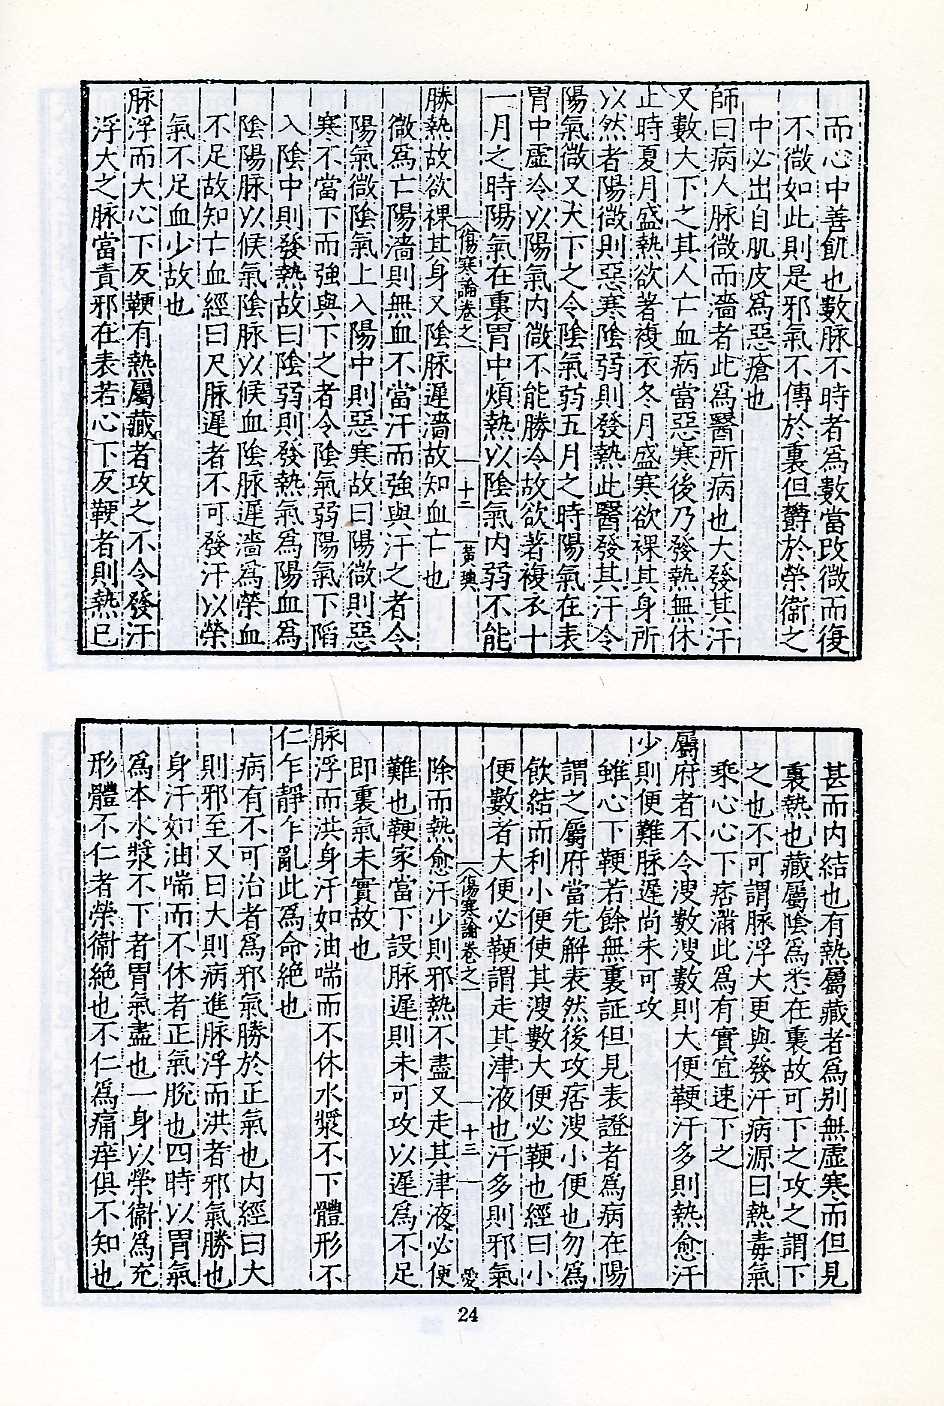 而心中善飢也數脉不時者爲數當改微而復
不微如此則是邪氣不傳於裏但鬱於榮衞之
中必出自肌皮爲惡瘡也
師曰病人脉微而濇者此爲醫所病也大發其汗
又數大下之其人亡血病當惡寒後乃發熱無休
止時夏月盛熱欲著複衣冬月盛寒欲裸其身所
以然者陽微則惡寒陰弱則發熱此醫發其汗令
陽氣微又大下之令陰氣弱五月之時陽氣在表
胃中虛冷以陽氣内微不能勝冷故欲著複衣十
一月之時陽氣在裏胃中煩熱以陰氣内弱不能
傷寒論卷之一 十二 黃璵
勝熱故欲裸其身又陰脉遲濇故知血亡也
微爲亡陽濇則無血不當汗而強與汗之者令
陽氣微陰氣上入陽中則惡寒故曰陽微則惡
寒不當下而強與下之者令陰氣弱陽氣下陷
入陰中則發熱故曰陰弱則發熱氣爲陽血爲
陰陽脉以候氣陰脉以候血陰脉遲濇爲榮血
不足故知亡血經曰尺脉遲者不可發汗以榮
氣不足血少故也
脉浮而大心下反鞕有熱屬藏者攻之不令發汗
浮大之脉當責邪在表若心下反鞕者則熱已
甚而内結也有熱屬藏者爲别無虛寒而但見
裏熱也藏屬陰爲悉在裏故可下之攻之謂下
之也不可謂脉浮大更與發汗病源曰熱毒氣
乘心心下痞滿此爲有實宜速下之
屬府者不令溲數溲數則大便鞕汗多則熱愈汗
少則便難脉遲尚未可攻
雖心下鞕若餘無裏証但見表證者爲病在陽
謂之屬府當先解表然後攻痞溲小便也勿爲
飲結而利小便使其溲數大便必鞕也經曰小
便數者大便必鞕謂走其津液也汗多則邪氣
傷寒論卷之一 十三 愛
除而熱愈汗少則邪熱不盡又走其津液必便
難也鞕家當下設脉遲則未可攻以遲爲不足
即裏氣未實故也
脉浮而洪身汗如油喘而不休水漿不下體形不
仁乍靜乍亂此爲命絶也
病有不可治者爲邪氣勝於正氣也内經曰大
則邪至又曰大則病進脉浮而洪者邪氣勝也
身汗如油喘而不休者正氣脫也四時以胃氣
爲本水漿不下者胃氣盡也一身以榮衞爲充
形體不仁者榮衞絶也不仁爲痛痒俱不知也
24